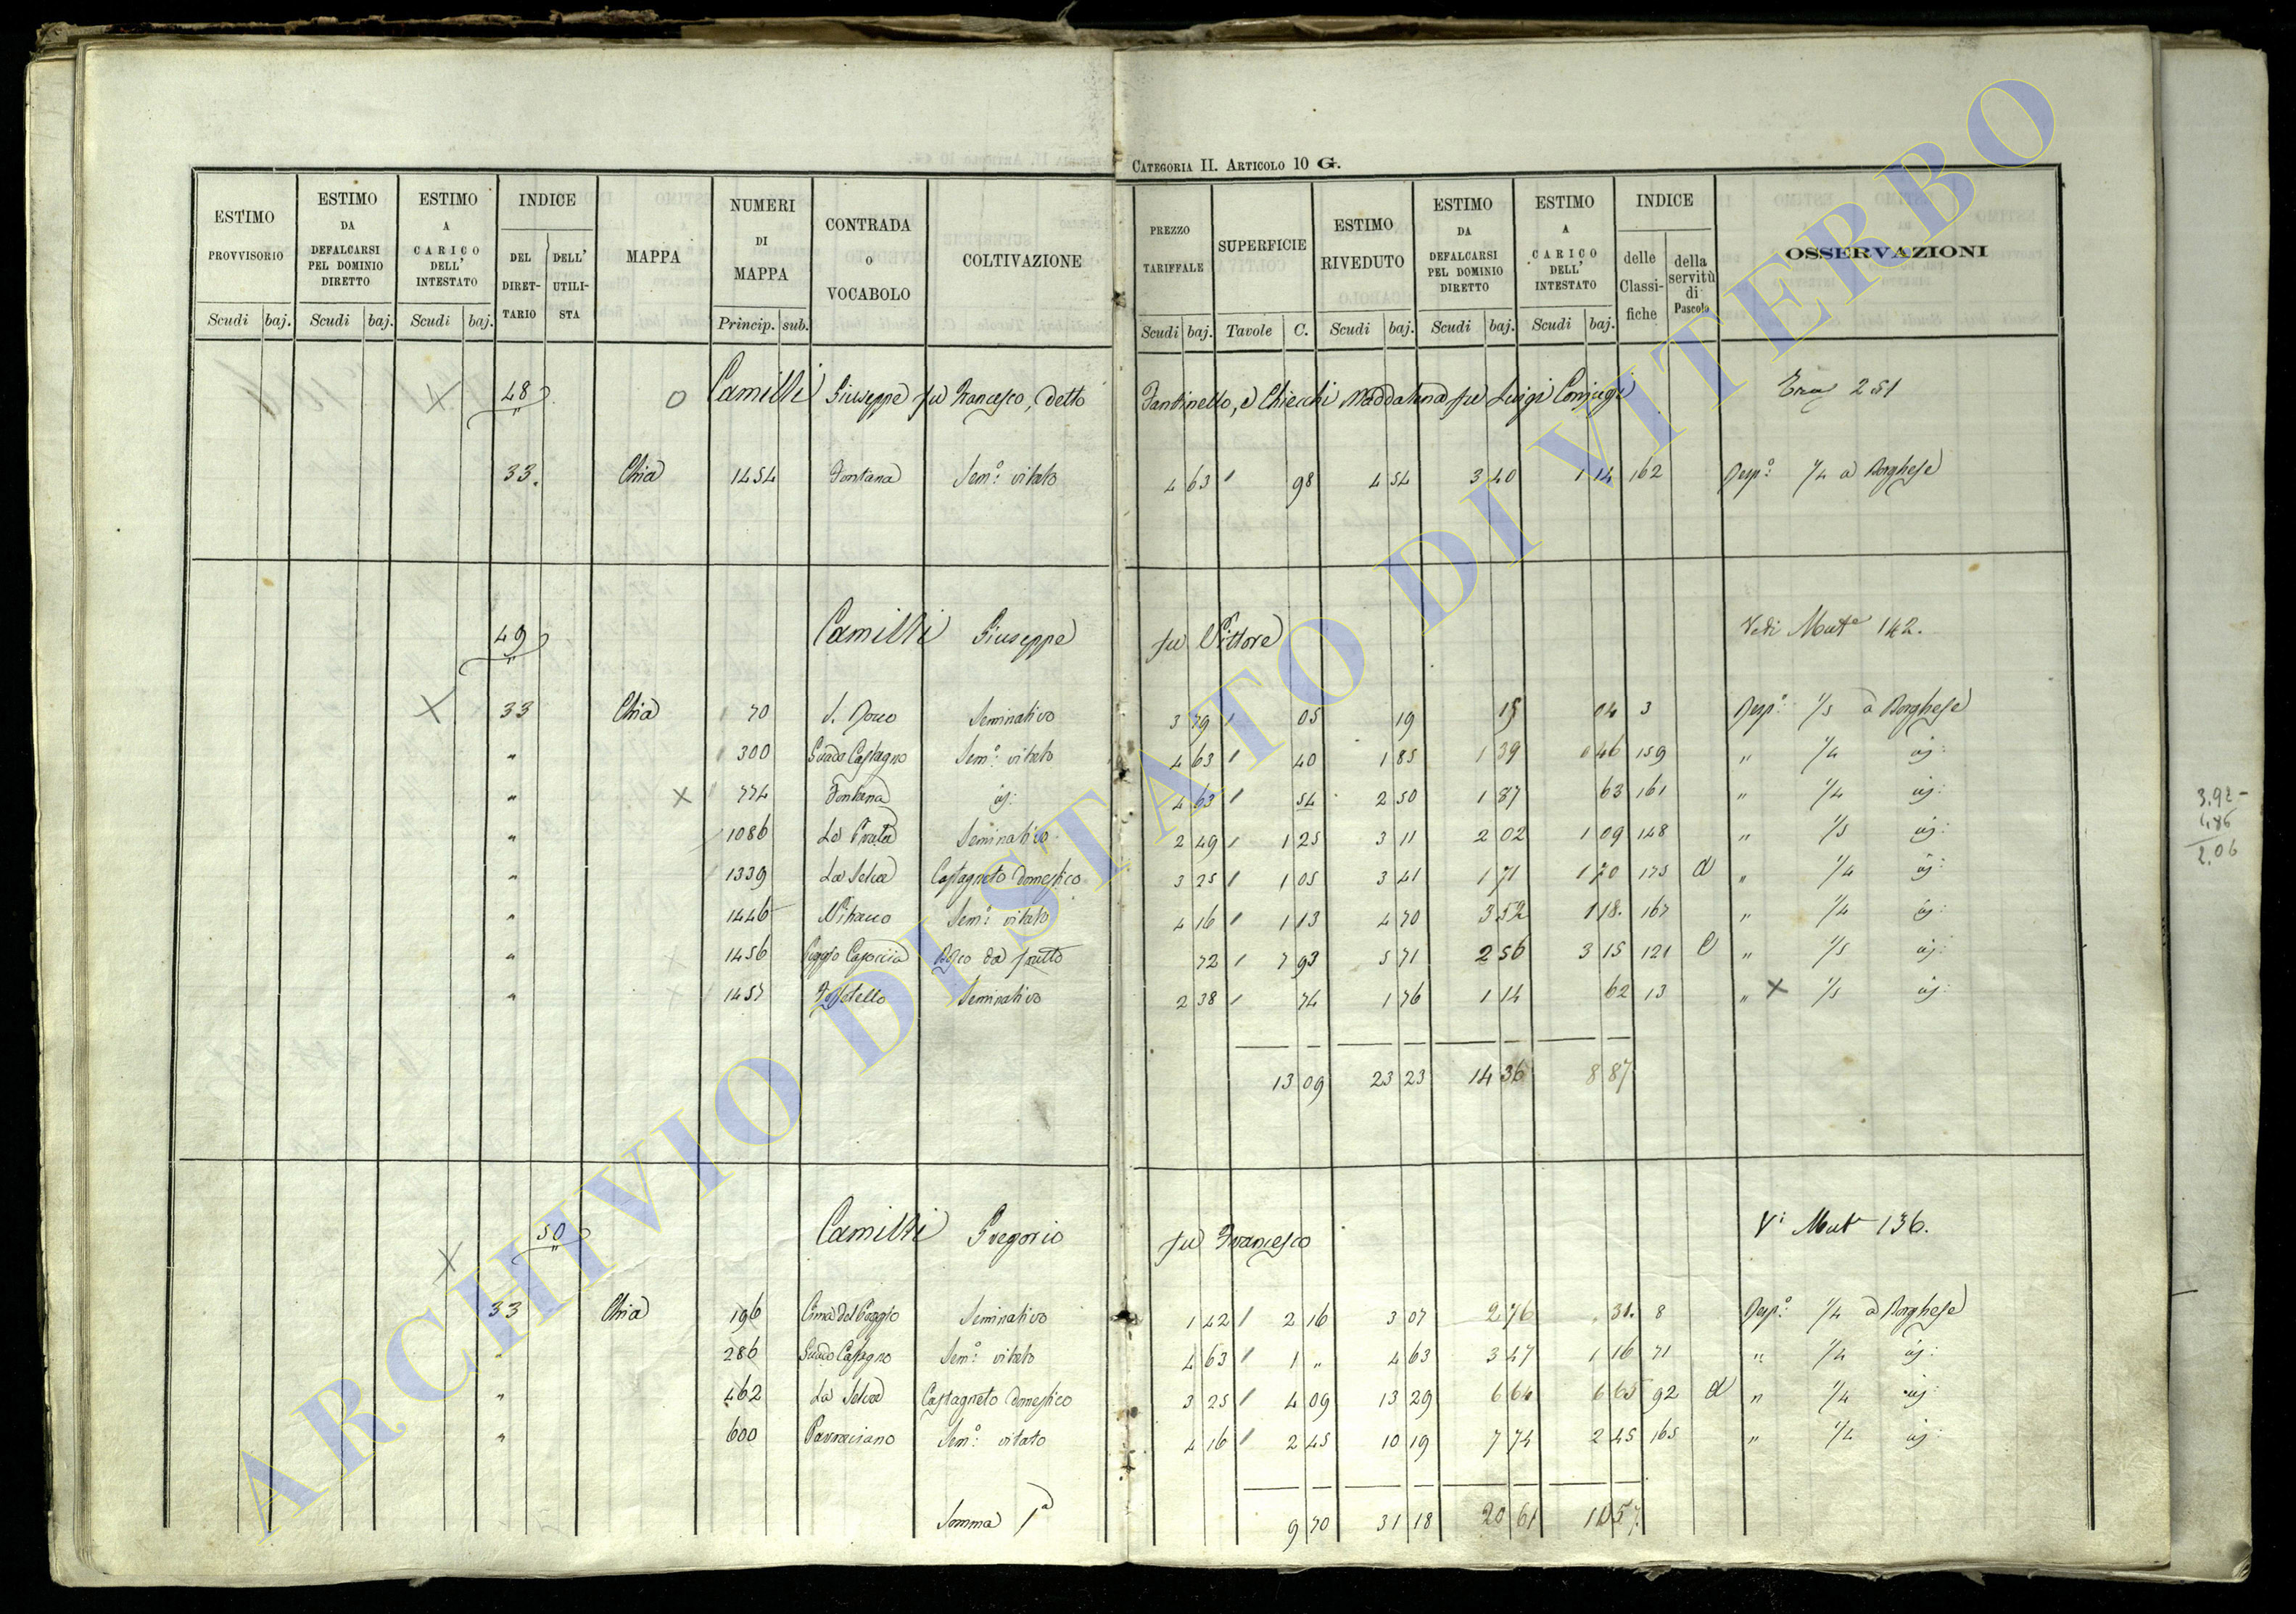 CATEGORIA II. ARTICOLO 10 G.
ESTIMO PROVVISORIO Scudi baj. ESTIMO DA DEFALCARSI PEL DOMINIO DIRETTO Scudi baj. ESTIMO A CARICO DELL' INTESTATO Scudi baj. INDICE DEL DIRET-TARIO DELL' UTILI-STA MAPPA NUMERI DI MAPPA Princip. sub. CONTRADA O VOCABOLO COLTIVAZIONE PREZZO TARIFFALE Scudi baj. SUPERFICIE Tavole C. ESTIMO RIVEDUTO Scudi baj. ESTIMO DA DEFALCARSI PEL DOMINIO DIRETTO Scudi baj. ESTIMO A CARICO DELL' INTESTATO Scudi baj. INDICE delle Classi-fiche della servitù di Pascolo OSSERVAZIONI
48 Camilli Giuseppe fu Francesco, detto Fantinello, e Chiecchi Maddalena fu Luigi Conjugi Era 251
33. Chia 1454 Fontana Sem.º vitato 4 63 1 98 4 54 3 40 1 14 162 Risp.º 1/4 a Borghese
49 Camilli Giuseppe fu Vittore Vedi Mut.e 142.
33 Chia 70 S. Rocco Seminativo 3 79 1 05 19 15 04 3 Risp.º 1/5 a Borghese
" 300 Guado Castagno Sem.º vitato 4 63 1 40 1 85 1 39 0 46 159 " 1/4 id:
" 774 Fontana id: 4 63 1 54 2 50 1 87 63 161 " 1/4 id:
" 1086 La Prata Seminativo 2 49 1 1 25 3 11 2 02 1 09 148 " 1/5 id:
" 1339 La Selva Castagneto domestico 3 25 1 1 05 3 41 1 71 1 70 175 d " 1/4 id:
" 1446 Vitrano Sem.º vitato 4 16 1 1 13 4 70 3 52 1 18. 167 " 1/4 id:
" 1456 Poggio Casoccia Bosco da frutto 72 1 7 93 5 71 2 56 3 15 121 e " 1/5 id:
" 1457 Fossatello Seminativo 2 38 1 74 1 76 1 14 62 13 " 1/5 id:
13 09 23 23 14 36 8 87
50 Camilli Gregorio fu Francesco V.i Mut.e 136.
33 Chia 196 Cima del Poggio Seminativo 1 42 1 2 16 3 07 2 76 31. 8 Risp.º 1/4 a Borghese
" 286 Guado Castagno Sem.º vitato 4 63 1 1 " 4 63 3 47 1 16 71 " 1/4 id:
" 462 La Selva Castagneto domestico 3 25 1 4 09 13 29 6 64 6 65 92 d " 1/4 id:
" 600 Pavraciano Sem.º vitato 4 16 1 2 45 10 19 7 74 2 45 165 " 1/4 id:
Somma 1a 9 70 31 18 20 61 10 57
3.92
1,86
2,06
ARCHIVIO DI STATO DI VITERBO